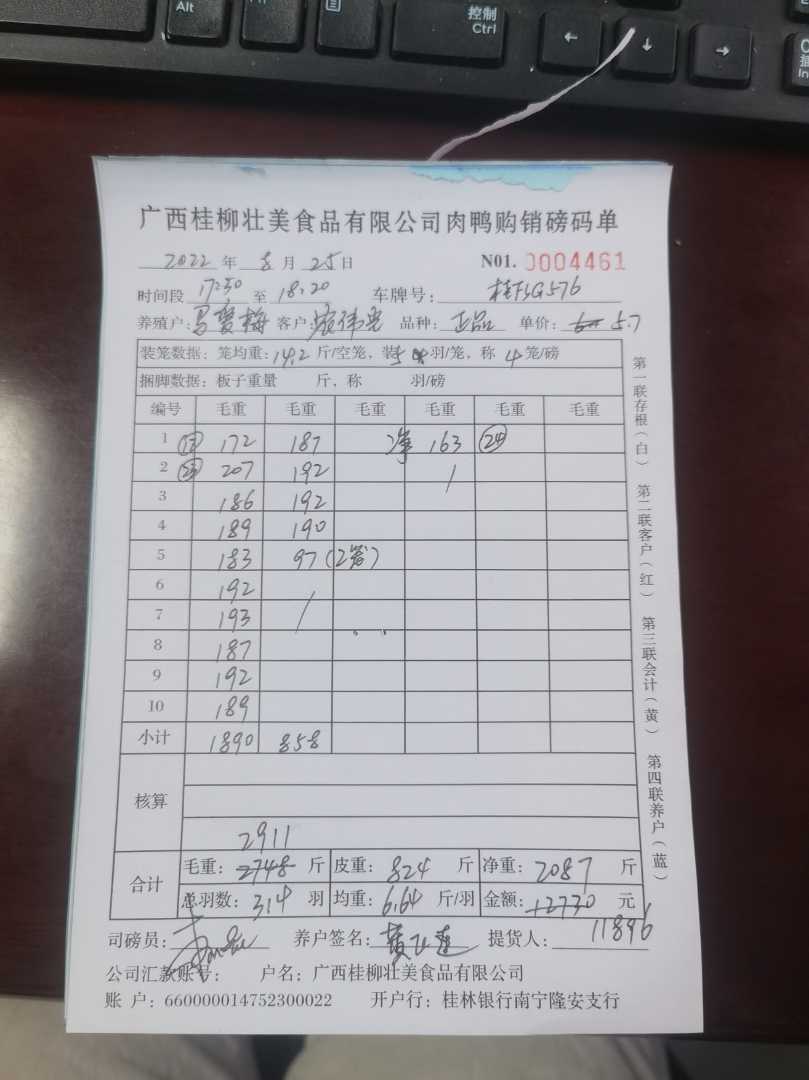 Alt
Fn
控制
Ctrl
←
↓
→
广西桂柳壮美食品有限公司肉鸭购销磅码单
2022 年 8 月 25 日 N01. 0004461
时间段 17:50 至 18:20 车牌号:
养殖户: 客户: 品种: 正品 单价: 5.7
装笼数据: 笼均重: 14.2 斤/空笼, 装 5 羽/笼, 称 4 笼/磅
捆脚数据: 板子重量 斤, 称 羽/磅
编号 毛重 毛重 毛重 毛重 毛重 毛重
1 172 187 163
2 207 192
3 186 192
4 189 190
5 183 97 (2笼)
6 192
7 193
8 187
9 192
10 189
小计 1890 858
核算
2911
合计 毛重: 2748 斤 皮重: 824 斤 净重: 2087 斤
总羽数: 314 羽 均重: 6.64 斤/羽 金额: 12730 元
司磅员: 养户签名: 提货人: 11896
公司汇款账号: 户名: 广西桂柳壮美食品有限公司
账 户: 660000014752300022 开户行: 桂林银行南宁隆安支行
第一联存根(白) 第二联客户(红) 第三联会计(黄) 第四联养户(蓝)